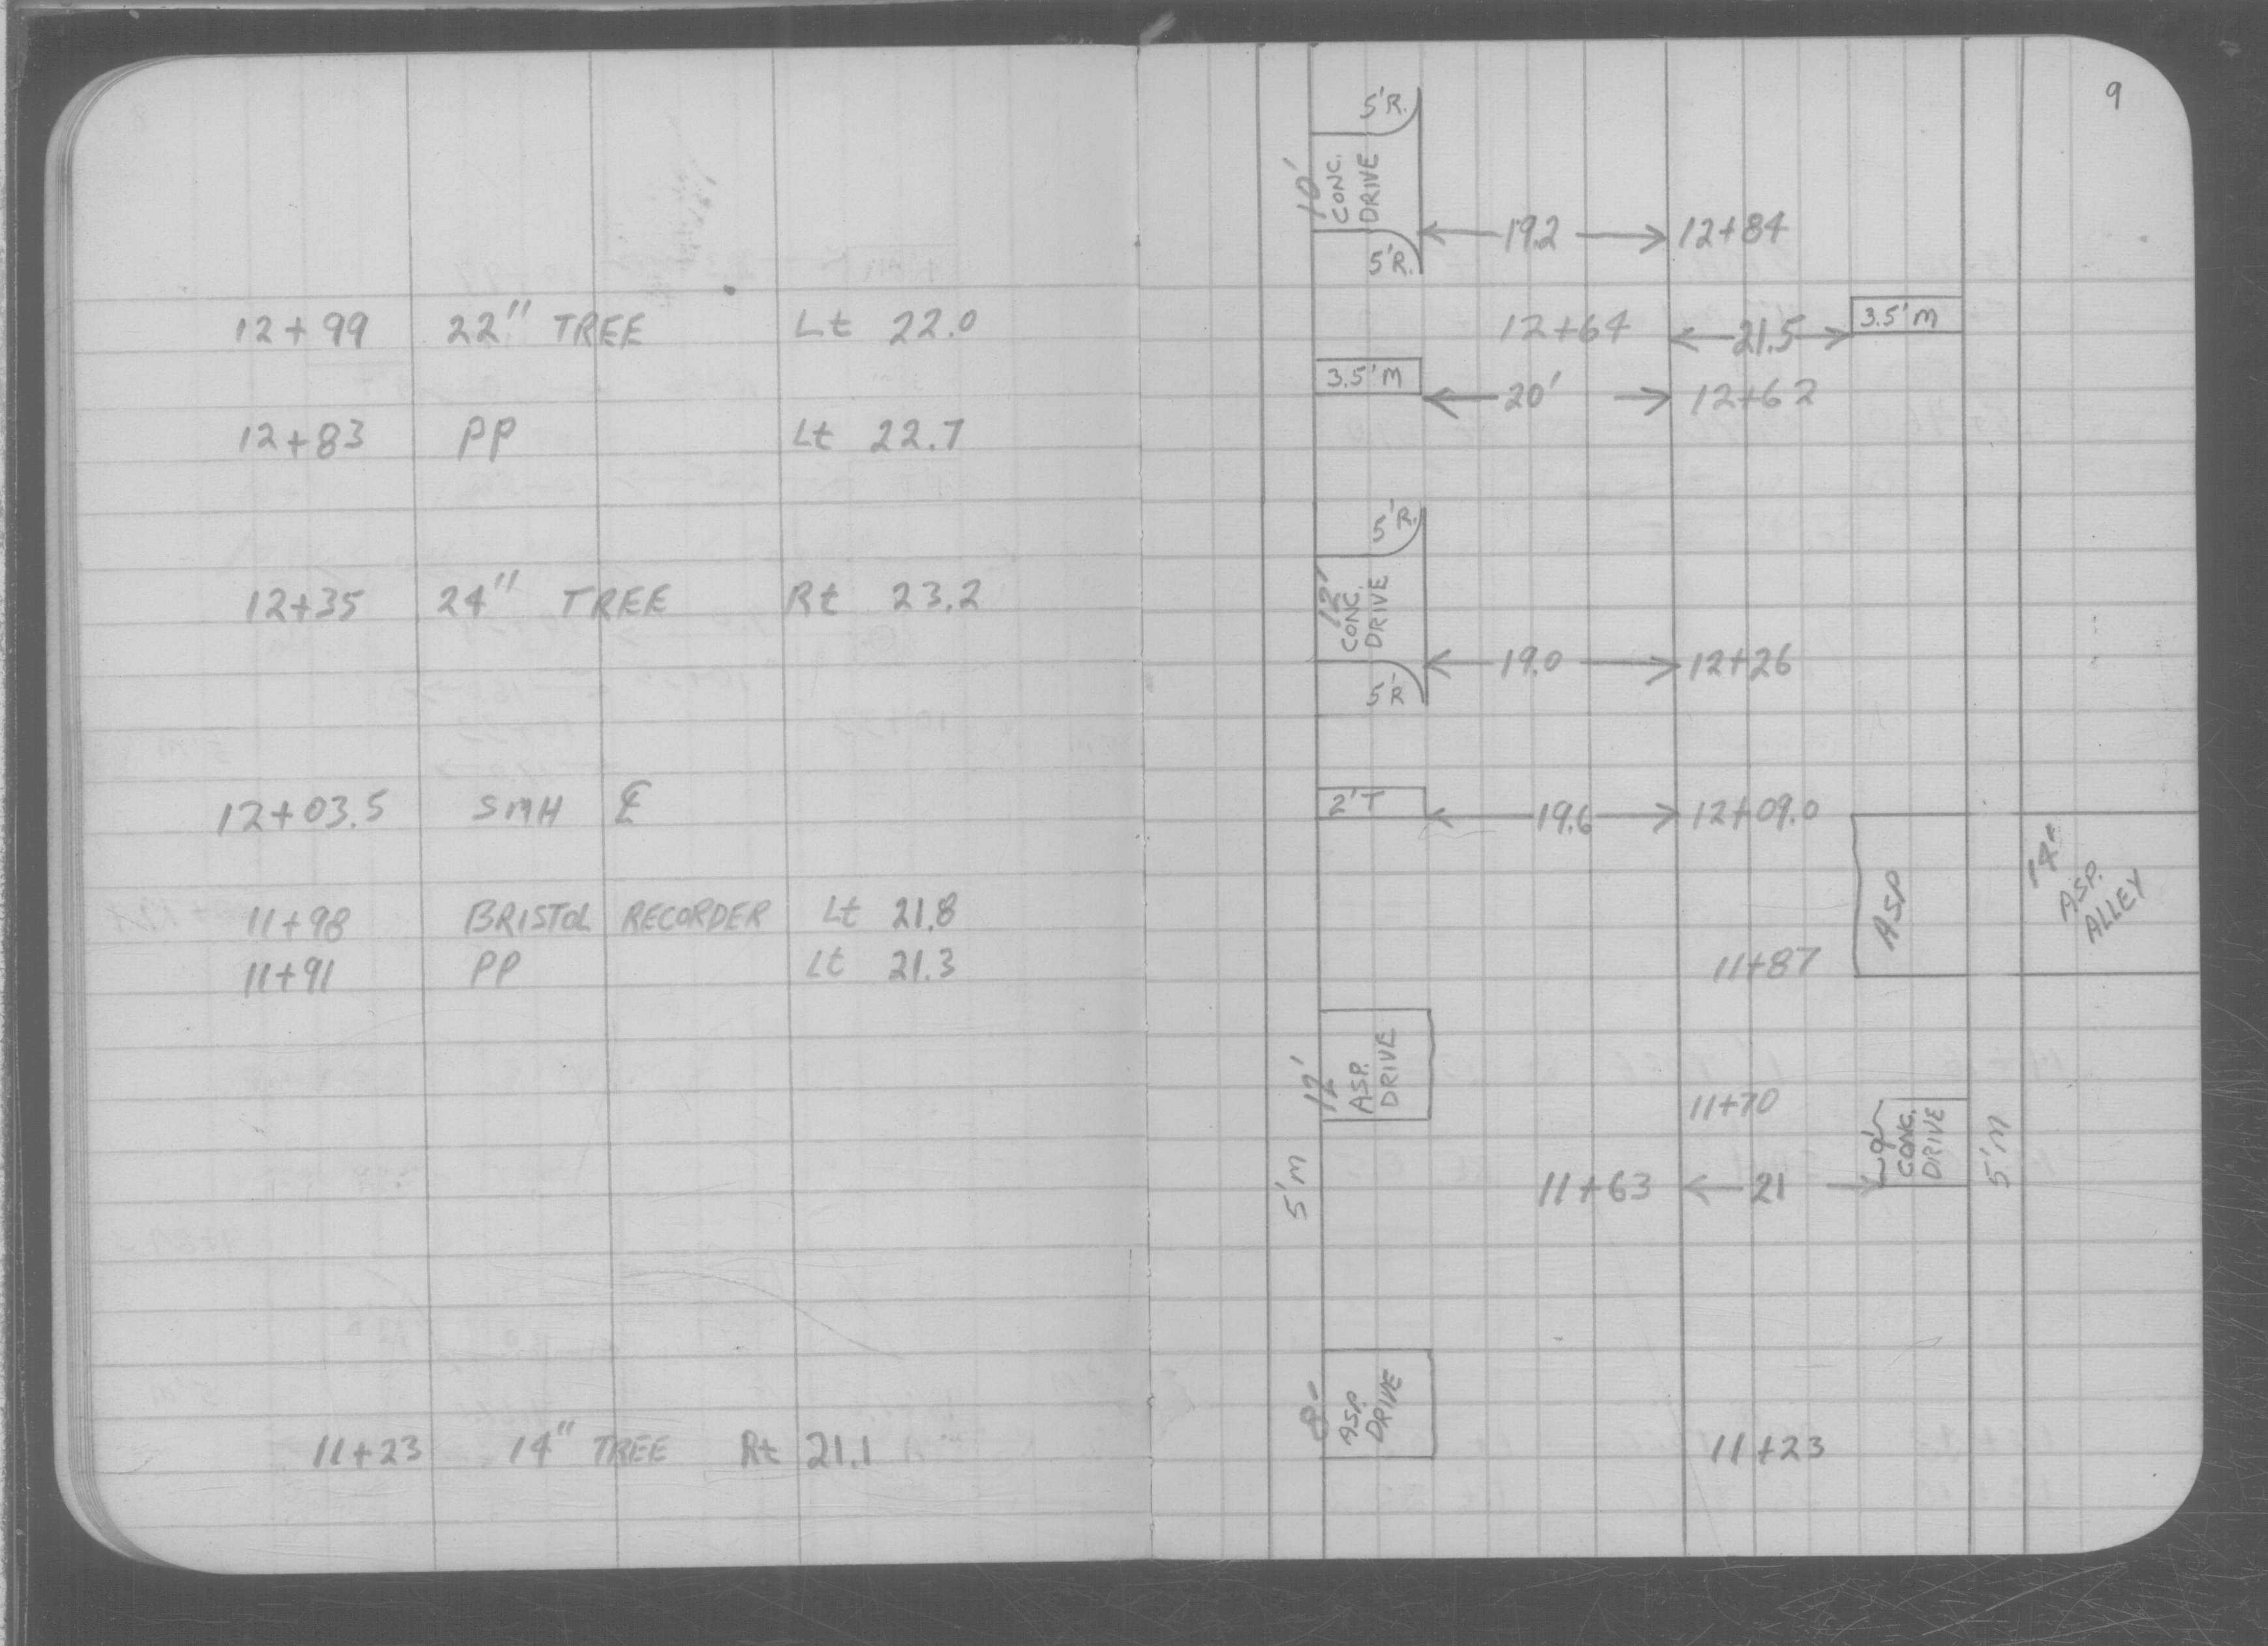 12+99 22" TREE Lt 22.0
12+83 PP Lt 22.7
12+35 24" TREE Rt 23.2
12+03.5 SMH ℄
11+98 BRISTOL RECORDER Lt 21.8
11+91 PP Lt 21.3
11+23 14" TREE Rt 21.1
9
5'R.
10'
CONC.
DRIVE
19.2 12+84
5'R.
12+64 21.5 3.5'M
3.5'M
20' 12+62
5'R.
12'
CONC.
DRIVE
19.0 12+26
5'R
2'T
19.6 12+09.0
14'
ASP.
ALLEY
ASP
11+87
12'
ASP.
DRIVE
11+70
9'
CONC.
DRIVE
5'M
5'M
11+63 21
8'
ASP.
DRIVE
11+23